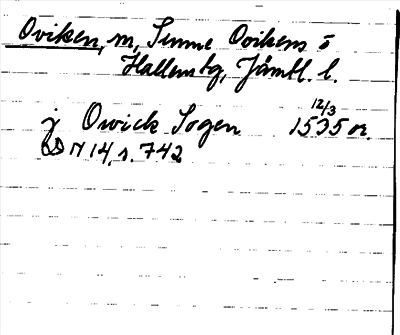 Oviken, m, Sunne Ovikens o
Hallens tg, Jämtl. l.
12/3
j Owick Sogen 1535 or.
DN 14, s. 742